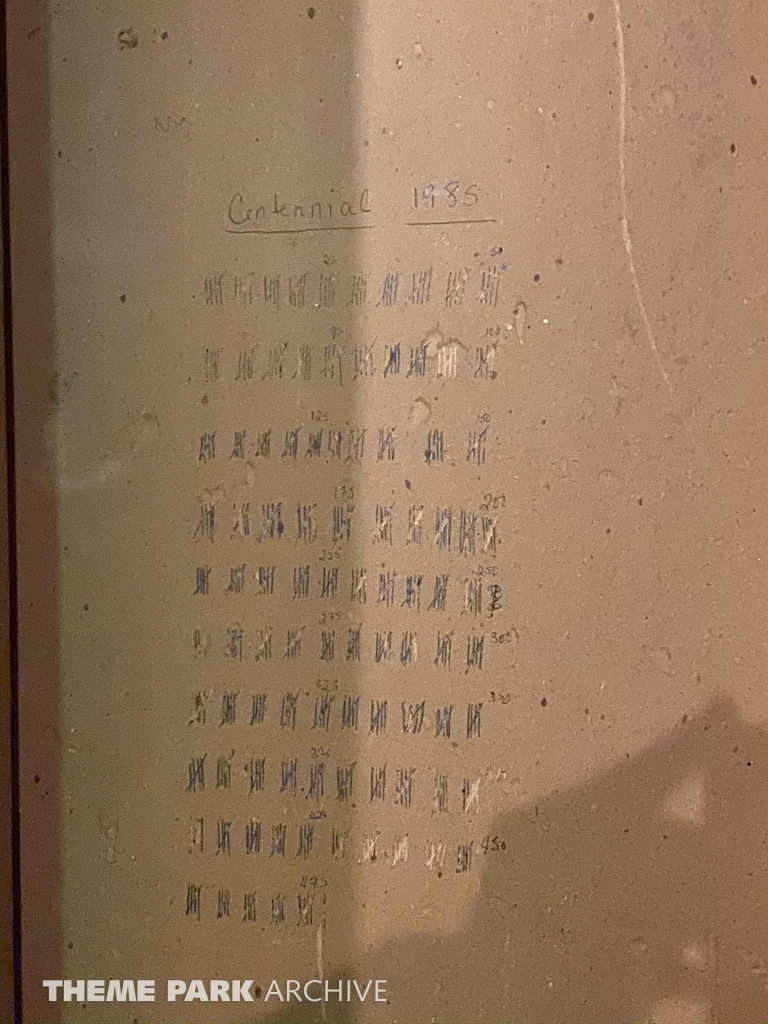 Centennial 1985
25 50
100
125 150
175 200
225 250
275 300
325 350
450
475
THEME PARK ARCHIVE